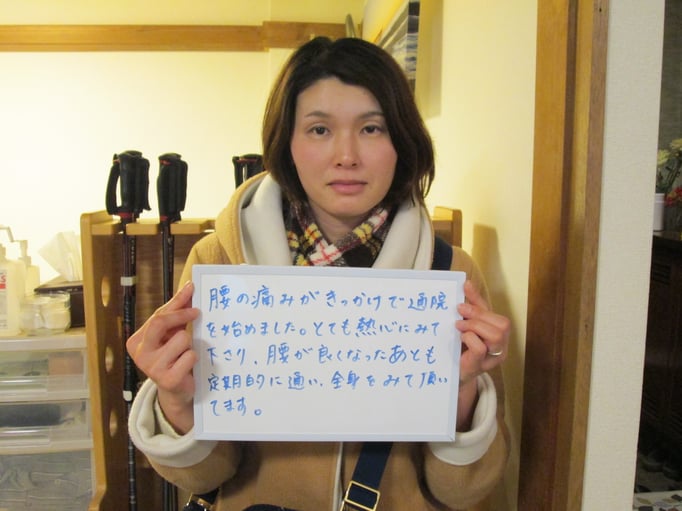 腰の痛みがきっかけで通院
を始めました。とても熱心にみて
下さり、腰が良くなったあとも
定期的に通い、全身をみて頂い
てます。